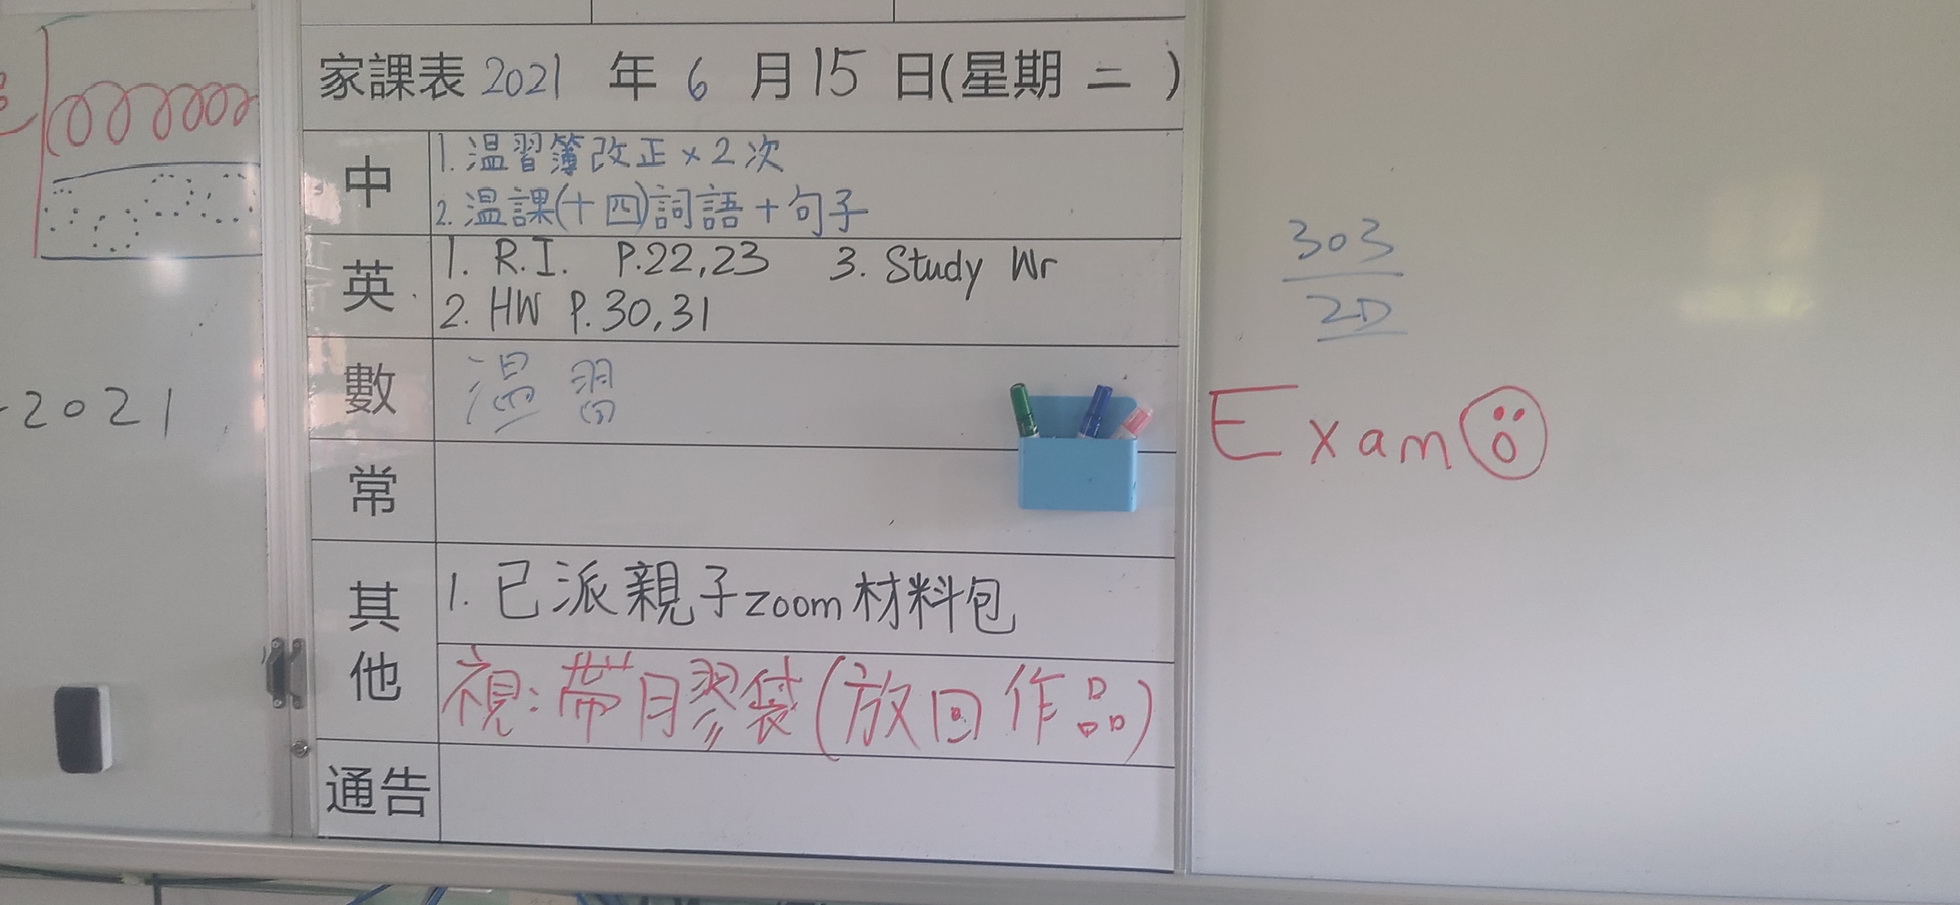 家課表 2021 年 6 月 15 日(星期 二 )
中
1. 温習簿改正 × 2次
2. 温課(十四)詞語 + 句子
英
1. R.I. P.22,23 3. Study Wr
2. HW P.30,31
數
温習
常
其他
1. 已派親子zoom材料包
視:帶月膠袋(放回作品)
通告
-2021
303
2D
Exam